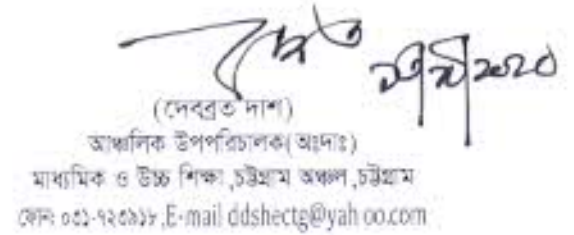 (দেবব্রত দাশ)
আঞ্চলিক উপপরিচালক(অঃদাঃ)
মাধ্যমিক ও উচ্চ শিক্ষা ,চট্টগ্রাম অঞ্চল ,চট্টগ্রাম
ফোন: ০৩১-৭২৩৯১৮ ,E-mail ddshectg@yah oo.com